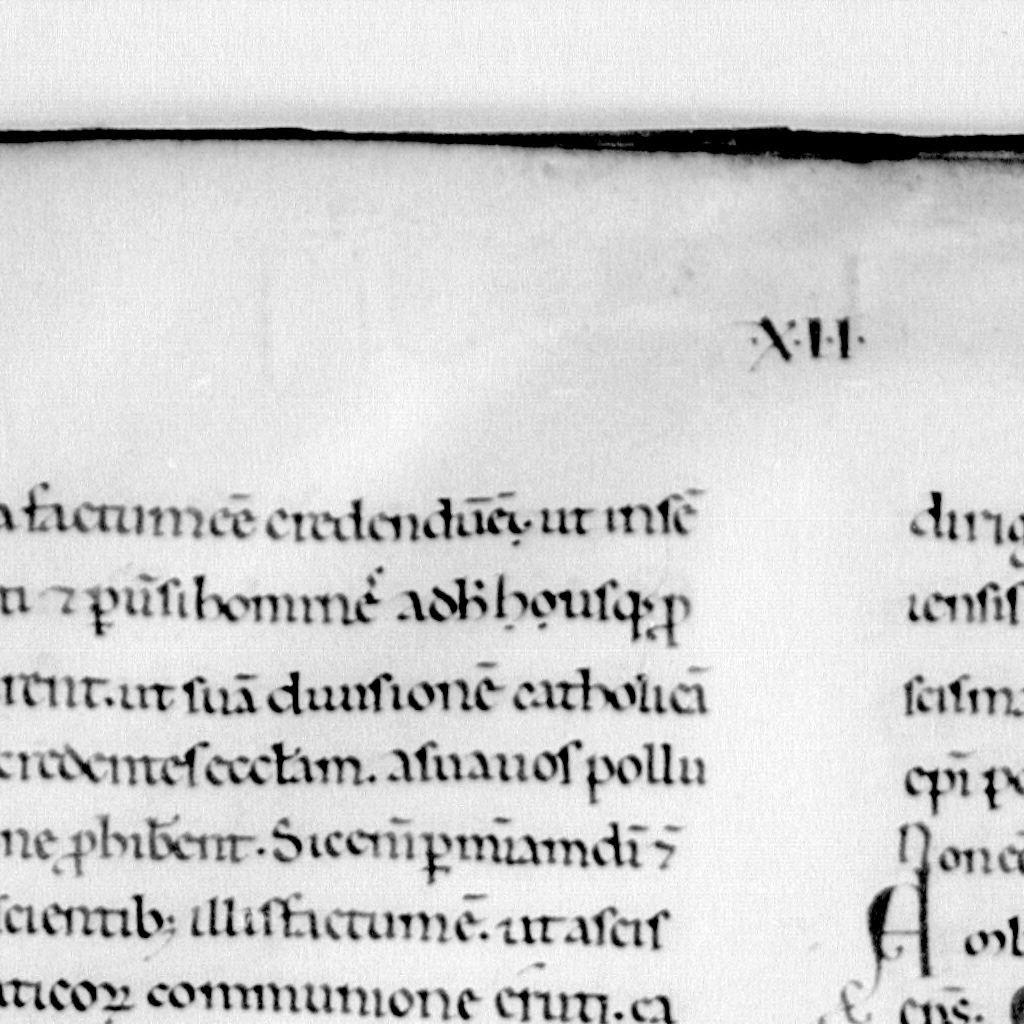 ·X·I·I·
factum eē credendū eī; ut in sē
ti ⁊ p̱ūsi homine᷒ adhuc usq; p
rent. ut suā diuisionē catholicā
credentes eccłam. a sua uos pollu
ne ꝓhibent. Sic eni̅ p mīam di̅ ⁊
scientib; illis factum ē. ut a scis
aticoꝝ communione eruti. ca
dirig
iensis
scisma
epī po
Non eē
A
eps.